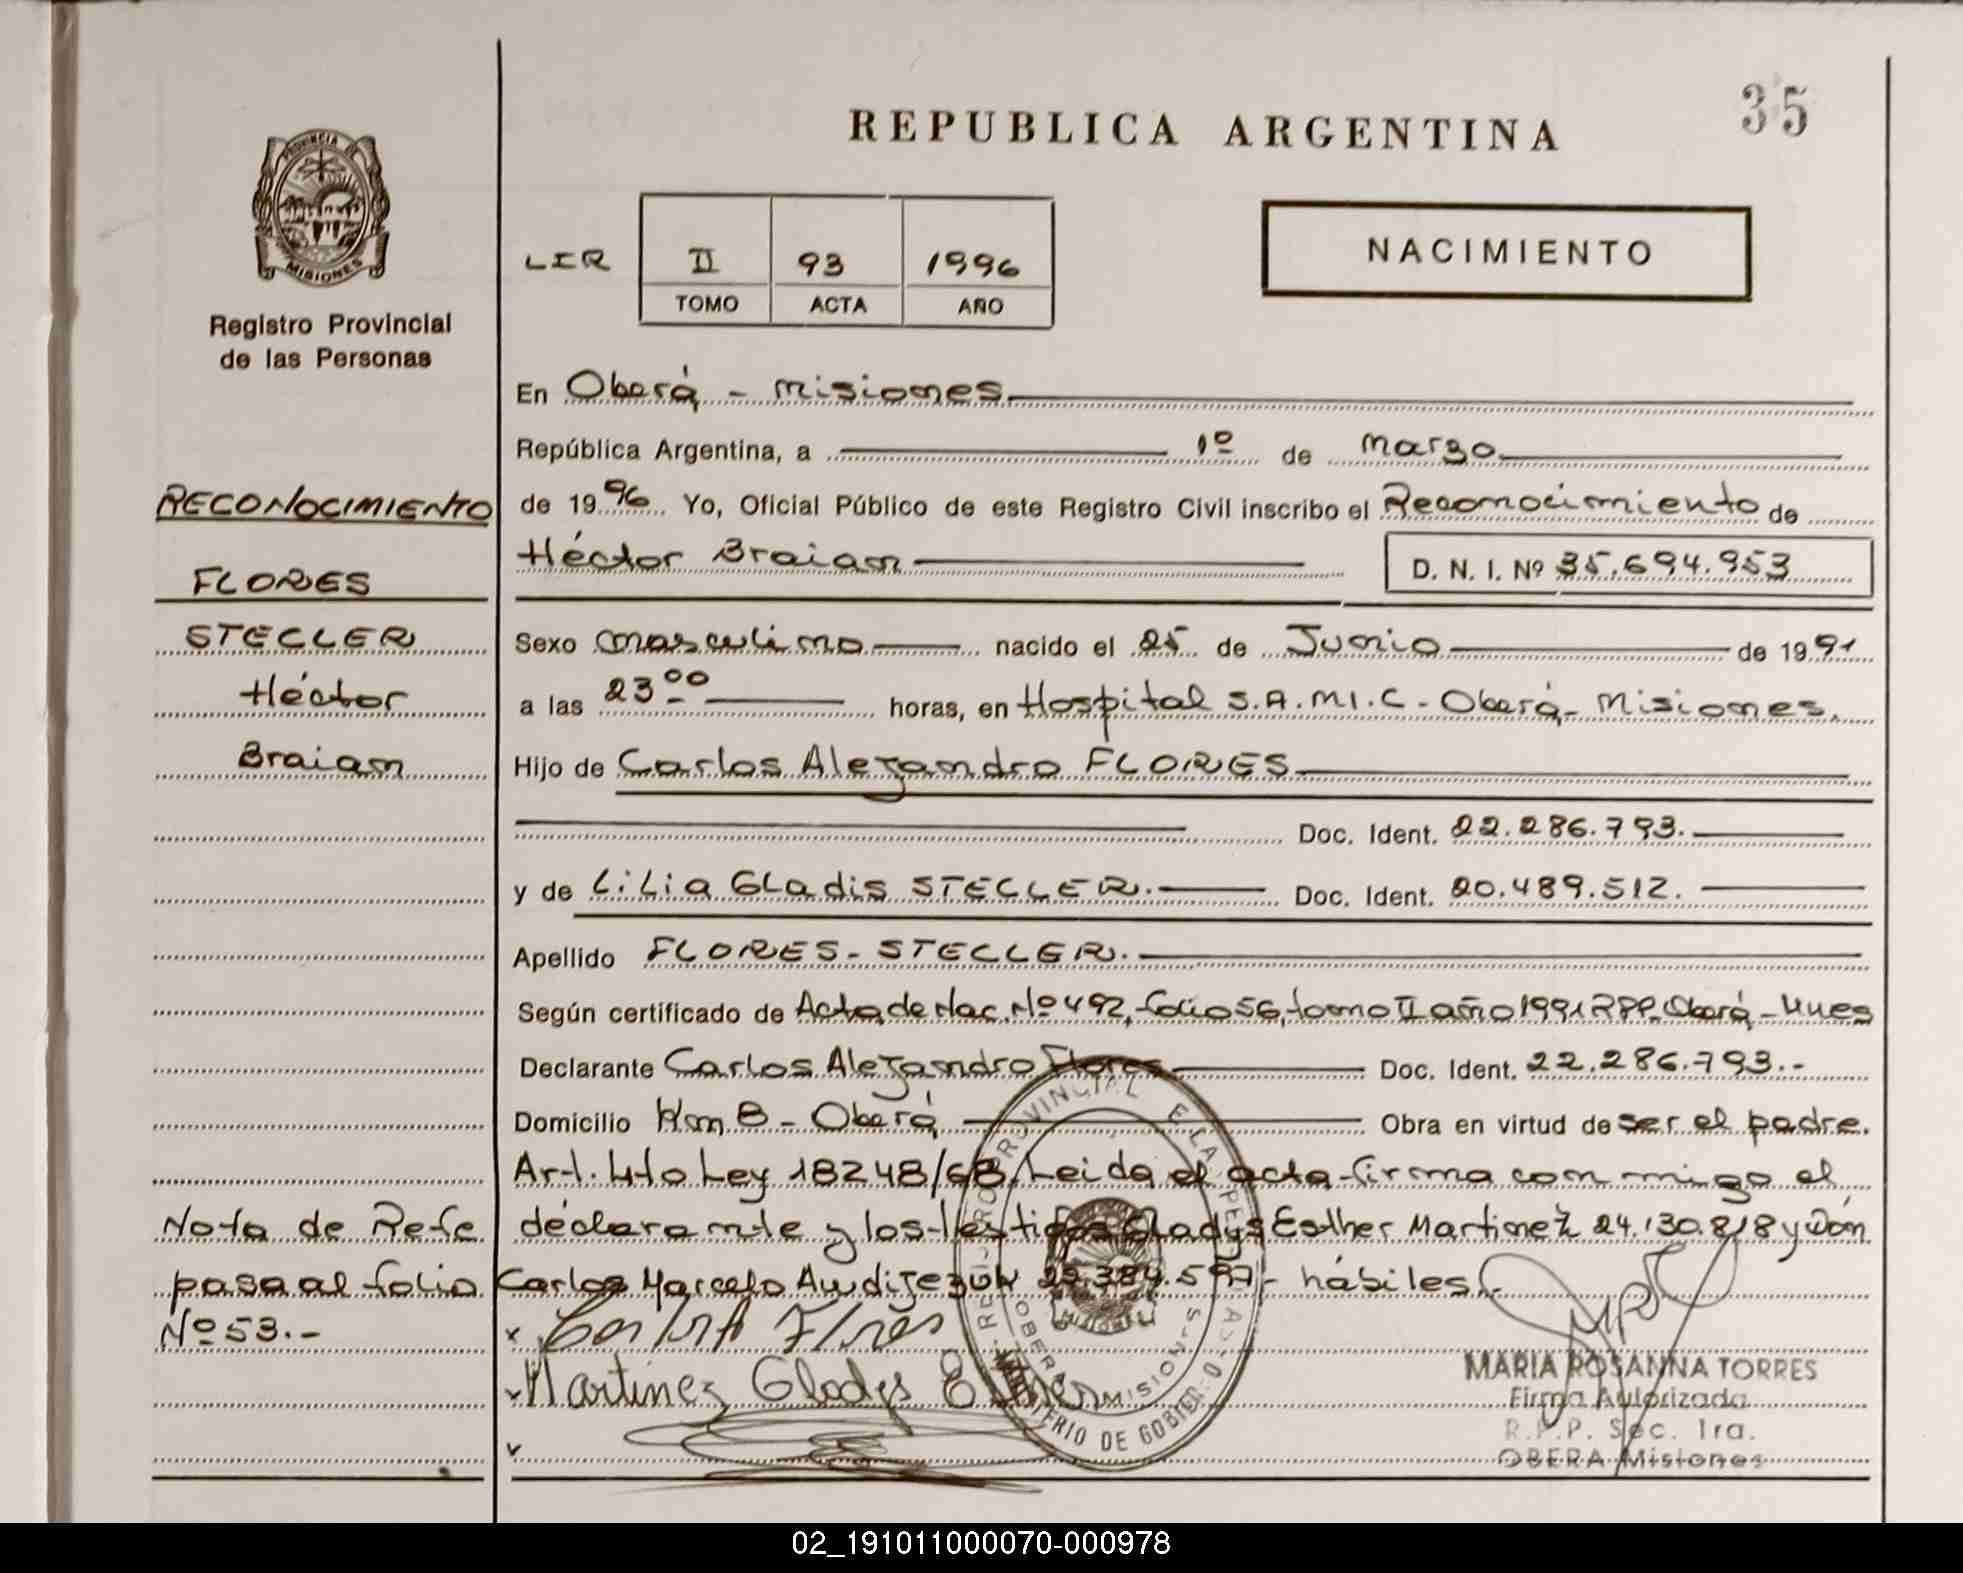 35
REPUBLICA ARGENTINA
PROVINCIA DE
MISIONES
Registro Provincial
de las Personas
NACIMIENTO
LER II 93 1996
TOMO ACTA AÑO
En Oberá - Misiones
República Argentina, a 1º de Marzo
de 1996 Yo, Oficial Público de este Registro Civil inscribo el Reconocimiento de
Héctor Braian D. N. I. Nº 35.694.953
Sexo masculino nacido el 25 de Junio de 1991
a las 23 00 horas, en Hospital S.A.M.I.C - Oberá - Misiones.
Hijo de Carlos Alejandro FLORES
Doc. Ident. 22.286.793.
y de Lilia Gladis STECLER. Doc. Ident. 20.489.512.
Apellido FLORES - STECLER.
Según certificado de Acta de Nac. Nº 492, folio 56, tomo II año 1991 RPP. Oberá - Mnes
Declarante Carlos Alejandro Flores Doc. Ident. 22.286.793.-
Domicilio Km 8 - Oberá Obra en virtud de ser el padre.
Art. 4to Ley 18248/68. Leida el acta firma con migo el
declarante y los testigos Gladys Esther Martinez 24.130.818 y Don
Carlos Marcelo hábiles.
RECONOCIMIENTO
FLORES
STECLER
Héctor
Braian
Nota de Refe
pasa al folio
Nº 53.-
x Carlos A Flores
Martinez Gladys Esther
REGISTRO PROVINCIAL DE LAS PERSONAS
OBERA MISIONES
MINISTERIO DE GOBIERNO
MARIA ROSANNA TORRES
Firma Autorizada
R.P.P. Sec. 1ra.
OBERA Misiones
02_191011000070-000978